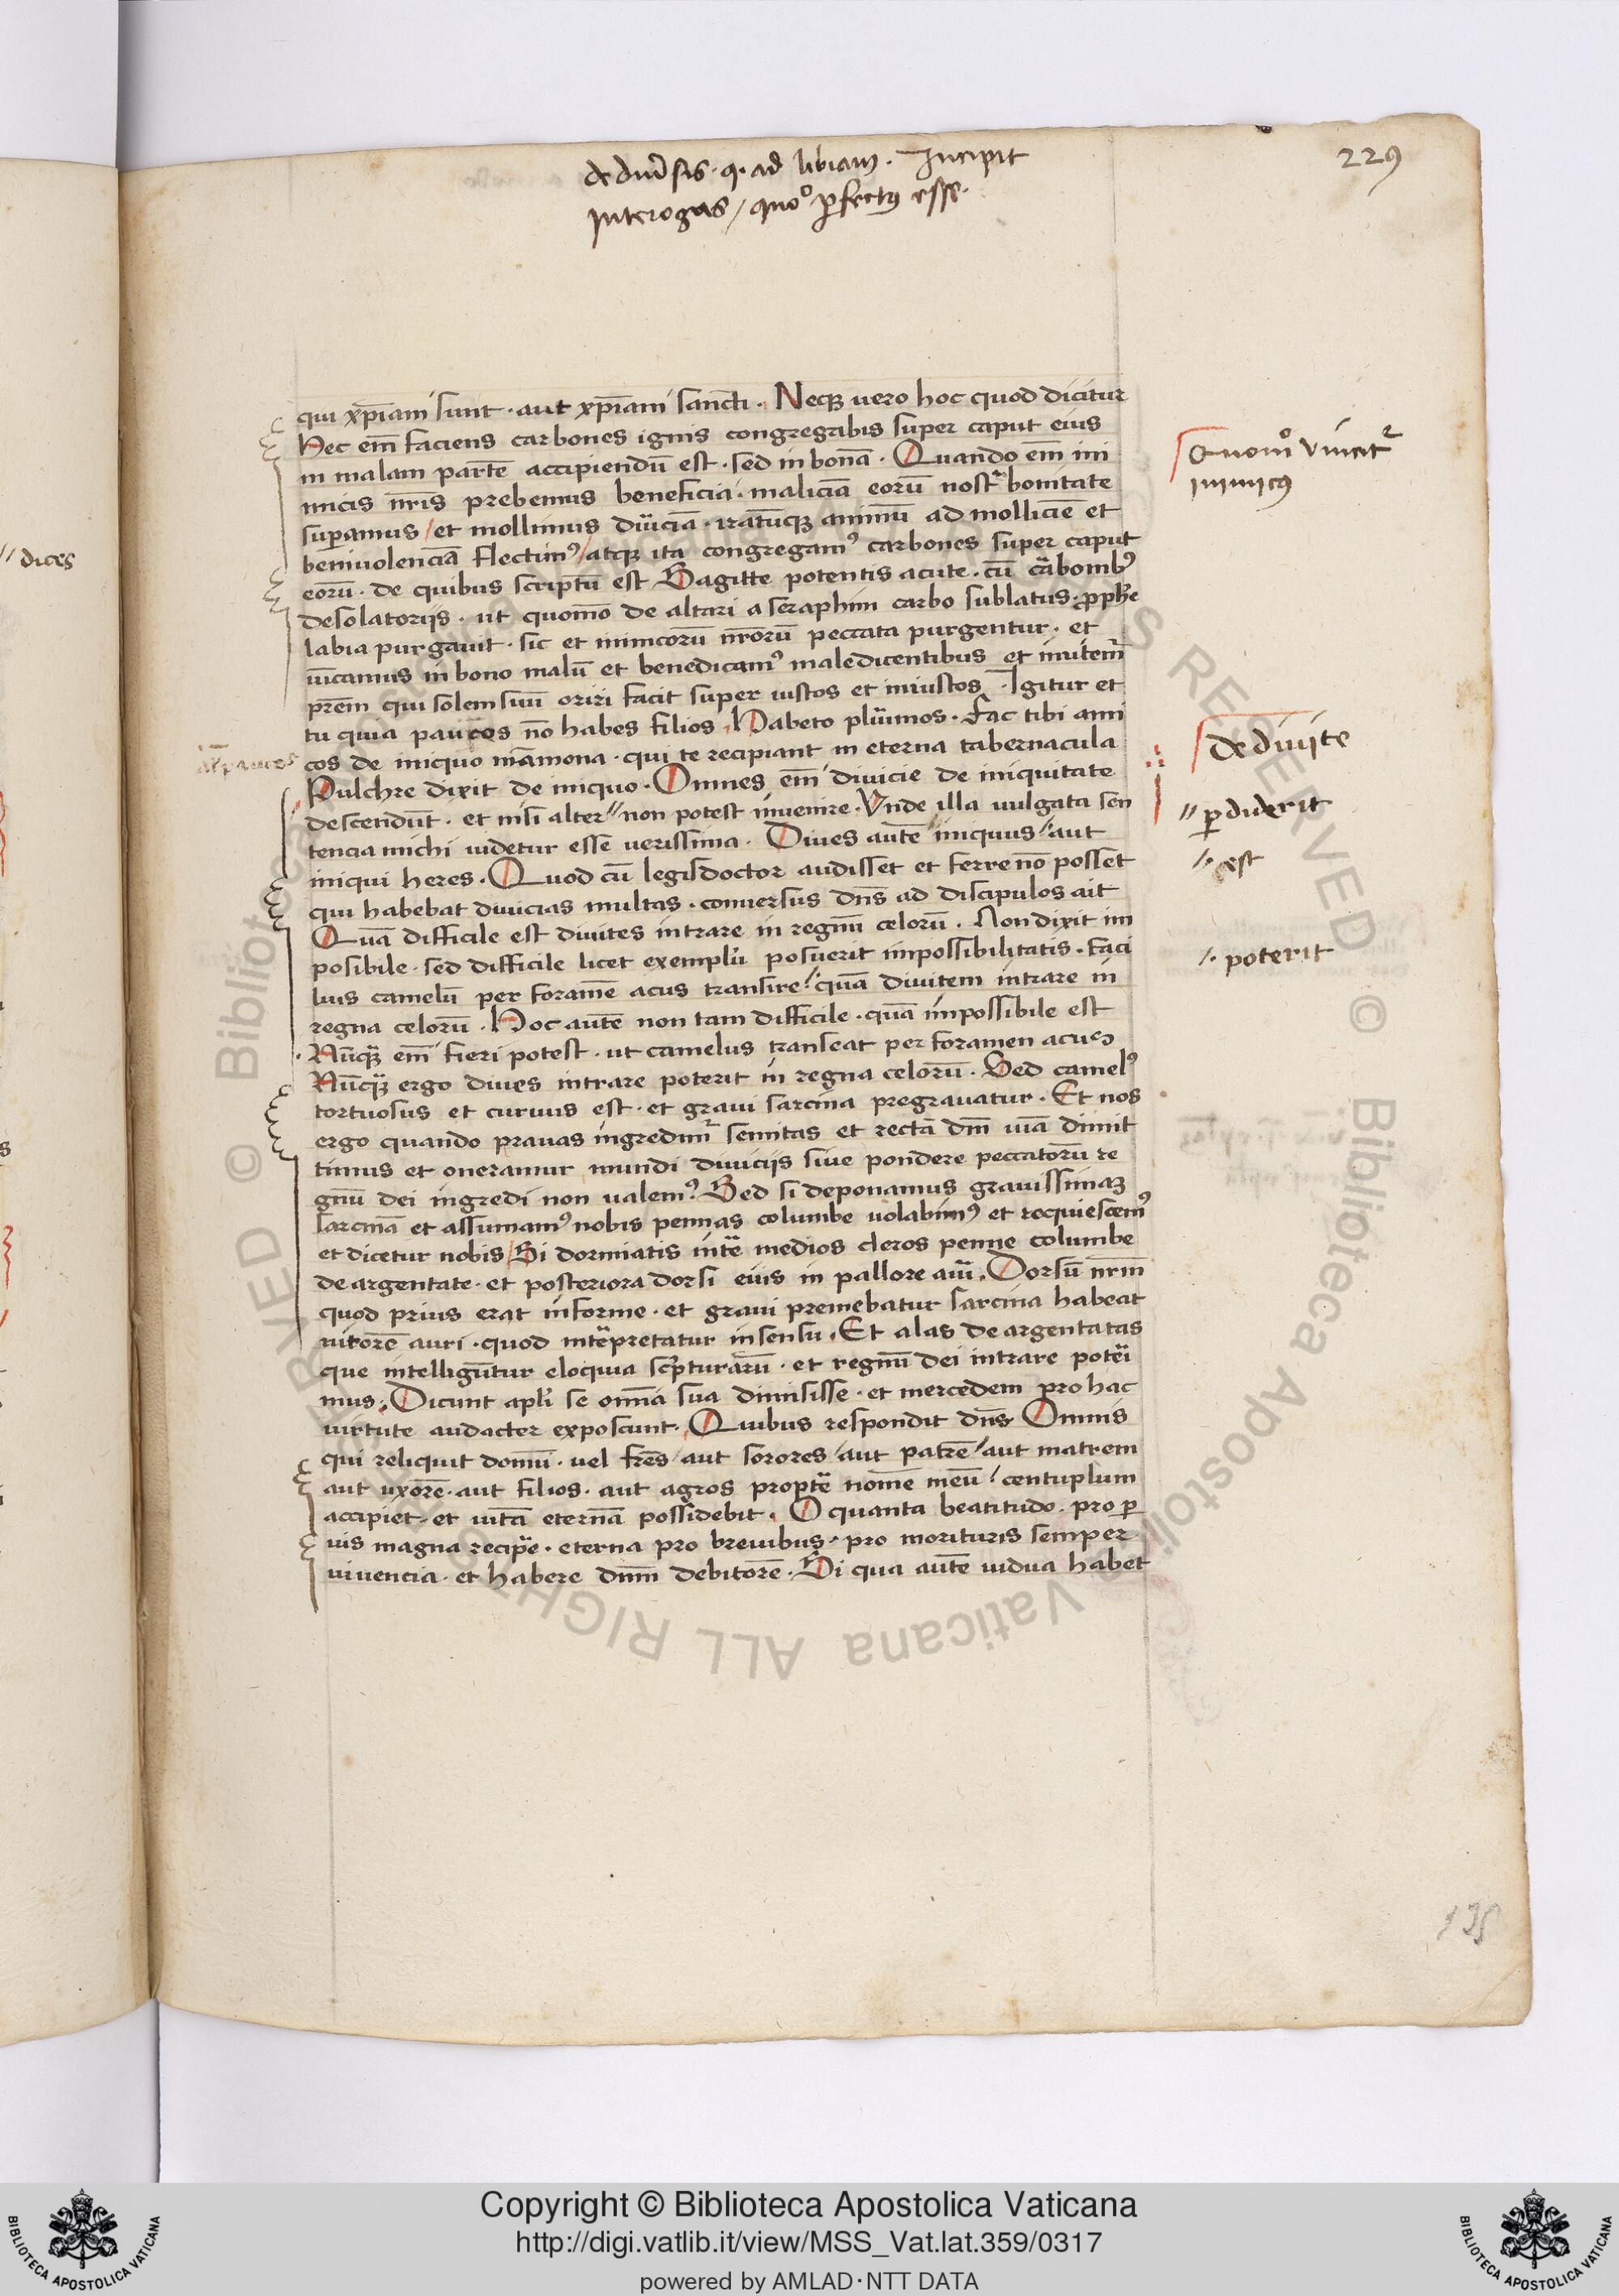 de diu̾sis · q · ad libiam . Incipit
Interogas / quo͂ ꝑfectꝰ esse ·
229
qui xp̄iani sunt · aut xp̄iani sanc̄ti . Neqꝫ uero hoc quod dicitur
Hec em̄ faciens carbones ignis congregabis super caput eius
in malam parte͂ accipiendū est · sed in bonā · Quando em̄ ini
micis nr̄is prebemus beneficia · maliciā eorū nostᵃ bonitate
suꝑamus / et mollimus duriciā · iratūqꝫ animū ad molliciē et
beniuolenciā flectimꝰ / atqꝫ ita congregamꝰ carbones super caput
eorū · de quibus scriptū est Sagitte potentis acute · cū carbonibꝰ
desolatorijs · ut quomō de altari a seraphim carbo sublatus · ꝓphe͂
labia purgauit · sic et inimicorū nr̄orū peccata purgentur · et
uīcamus in bono malū et benedicamꝰ maledicentibus et imitem̄
prēm qui solem suū oriri facit super iustos et iniustos · Igitur et
tu quia paucos nō habes filios · Habeto plurimos · fac tibi ami
cos de iniquo māmona · qui te recipiant in eterna tabernacula
Pulchre dixit de iniquo · Omnes em̄ diuicie de iniquitate
descendūt · et nisi alter // non potest inuenire · Vnde illa uulgata sen
tencia michi uidetur esse uerissima · Diues autē // iniquus / aut
iniqui heres · Quod cū legisdoctor audisset et ferre nō posset
qui habebat diuicias multas · conuersus dn̄s ad discipulos ait
Quā difficile est diuites intrare in regnū celorū . Non dixit im
posibile · sed difficile licet exemplū posuerit impossibilitatis · faci
lius camelū per foramē acus transire // quā diuitem intrare in
regna celorū · Hoc autē non tam difficile · quā impossibile est
Nūqꝫ em̄ fieri potest · ut camelus transeat per foramen acus
Nūqꝫ ergo diues intrare poterit in regna celorū · Sed camelꝰ
tortuosus et curuus est · et graui sarcina pregrauatur · Et nos
ergo quando prauas ingredimr̄ semitas et rectā dn̄i uiā dimit
timus et oneramur mundi diuicijs siue pondere peccatorū re
gnū dei ingredi non ualemꝰ · Sed si deponamus grauissimaꝫ
sarcinā et assumamꝰ nobis pennas columbe uolabimꝰ et requiescemꝰ
et dicetur nobis / Si dormiatis int̄ medios cleros penne columbe
de argentate · et posteriora dorsi eius in pallore auri · Dorsū nr̄m
quod prius erat informe · et graui premebatur sarcina habeat
nitorē auri · quod int̄pretatur in sensu · Et alas de argentatas
que intelligūtur eloquia scripturarū · et regnū dei intrare poteri
mus · Dicunt apl̄i se omīa sua dimisisse · et mercedem pro hac
uirtute audacter exposcunt · Quibus respondit dn̄s Omnis
qui reliquit domū · uel fr̄es / aut sorores / aut patrē / aut matrem
aut uxorē · aut filios · aut agros propt̄ nomē meū / centuplum
accipiet · et uitā eternā possidebit · O quanta beatitudo · pro ꝑ
uis magna recipe͂ · eterna pro breuibus · pro morituris semper
viuencia · et habere dn̄m debitorē · Si qua autē uidua habet
Quomo͂ vincit᷑
inimicꝰ
de diuite
// ꝑdiderit
// est
// poterit
// dices
135
Copyright © Biblioteca Apostolica Vaticana
http://digi.vatlib.it/view/MSS_Vat.lat.359/0317
powered by AMLAD·NTT DATA
BIBLIOTECA APOSTOLICA VATICANA
BIBLIOTECA APOSTOLICA VATICANA